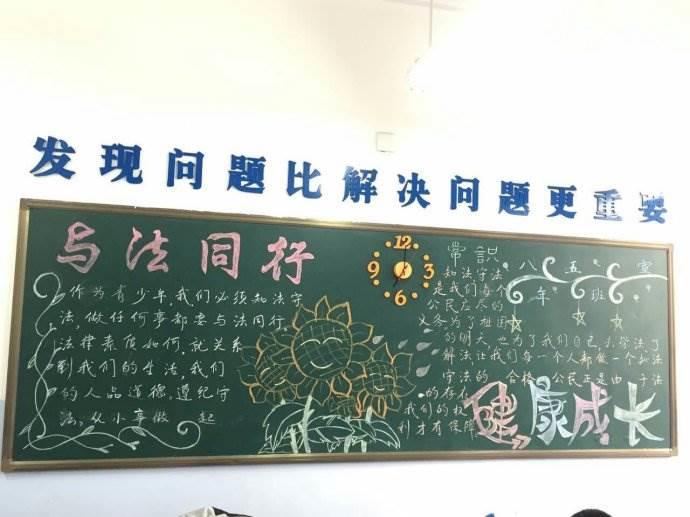 发现问题比解决问题更重要
与法同行
作为青少年,我们必须知法守
法,做任何事都要与法同行,
法律素质如何,就关系
到我们的生活,我们
的人品道德,遵纪守
法,从小事做 起
12
9 3
6
常识
知法守法
是我们每个
公民应尽的
义务为了祖国
的明天,也为了我们自己,学法了
解法让我们每一个人都做一个知法
守法的 合格 公民正是由于法
的存在
我们的权
利才有保障
八五
年班
健康成长